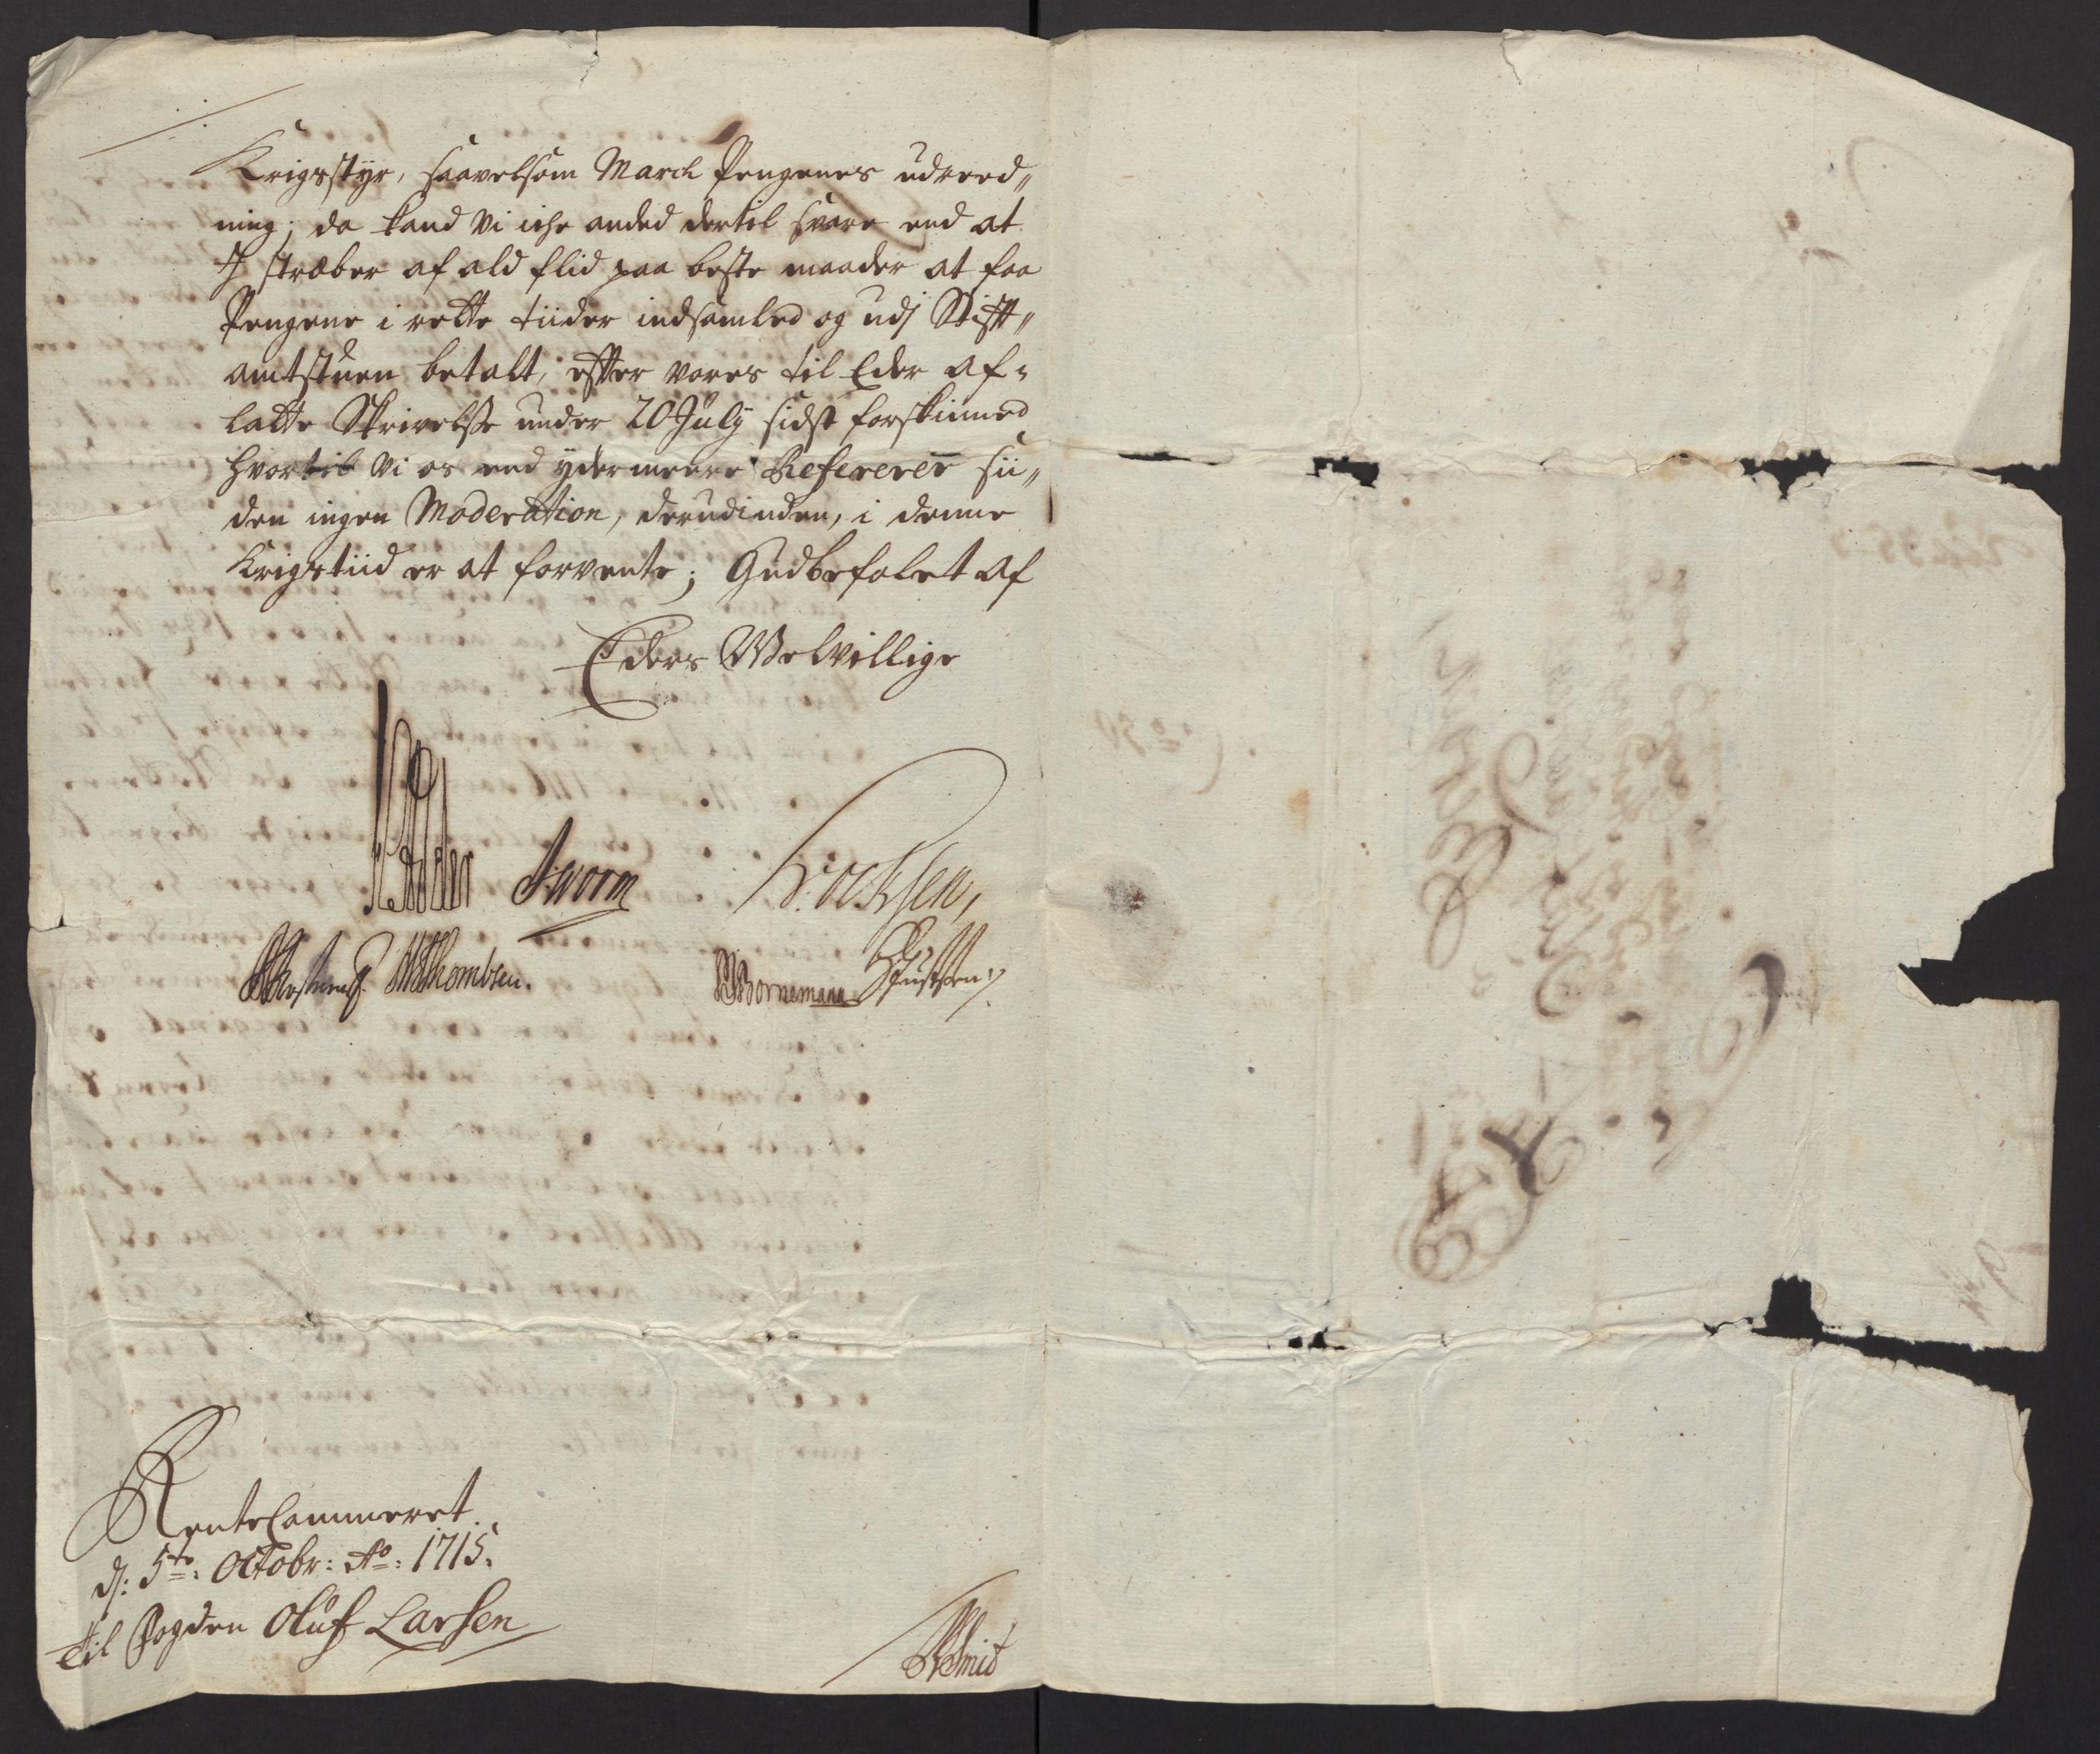 Krigsstyr, saavelsom March Pengenes udreed„
ning; da kand vi iche anded dertil svare end at
I stræber af ald flid paa beste maader at faa
Pengene i rette tiider indsamled og udj Stift„
amtstuen betalt, efter vores til Eder af„
latte Skrivelsse under 20 July sidst forskinned
hvortil vi os end ydermeere Refererer sii„
den ingen Moderation, derudinden, i denne
Krigstiid er at forvente; Gudbefalet af
Eders Welvillige
JWorm
Thombsen.
Bornemann
RenteCammeret
d: 5te: Octobr: Ao: 1715.
Til Fogden Oluf Larsen
Smit